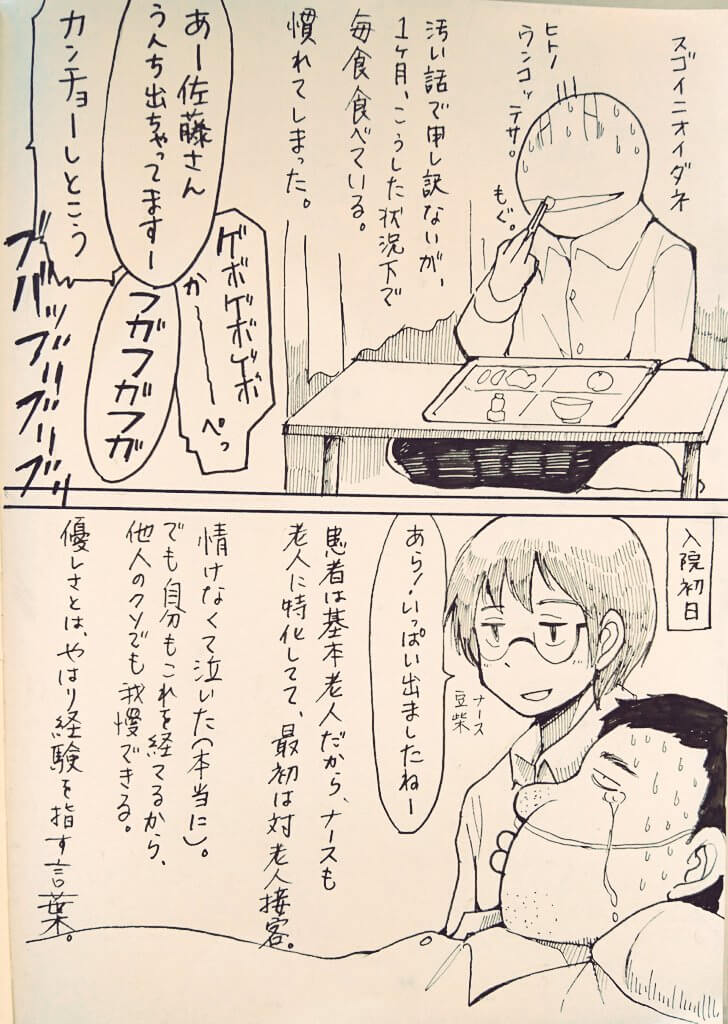 スゴイニオイダネ
ヒトノ
ウンコッテサ。
もぐ。
汚い話で申し訳ないが、
1ヶ月、こうした状況下で
毎食食べている。
慣れてしまった。
ゲボゲボゲボ
かーーーーペっ
あー佐藤さん
うんち出ちゃってますー
フガフガフガ
カンチョーしとこう
ブバッブリブリーブリッ
入院初日
あら!いっぱい出ましたねー
ナース
豆柴
患者は基本老人だから、ナースも
老人に特化してて、最初は対老人接客。
情けなくて泣いた(本当に)。
でも自分もこれを経てるから、
他人のクソでも我慢できる。
優しさとは、やはり経験を指す言葉。